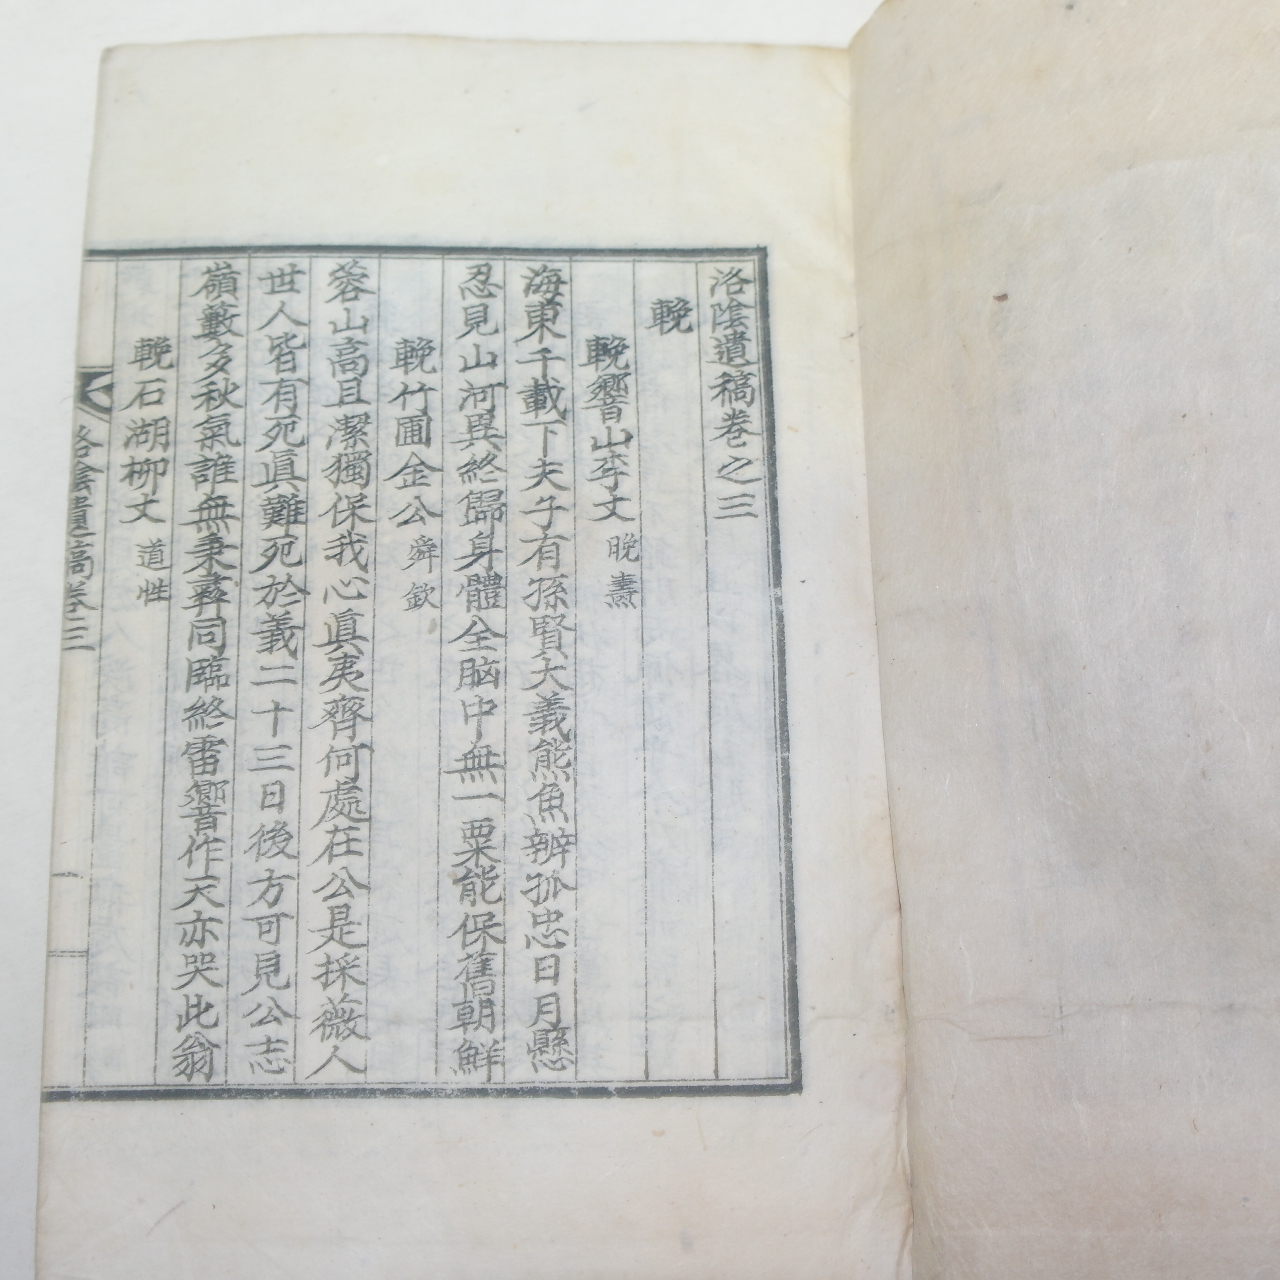 洛陰遺稿卷之三
輓
輓響山李丈 晚燾
海東千載下夫子有孫賢大義熊魚辨孤忠日月懸
忍見山河異終歸身體全腦中無一粟能保舊朝鮮
輓竹圃金公 舜欽
蓉山高且潔獨保我心眞夷齊何處在公是採薇人
世人皆有死眞難死於義二十三日後方可見公志
嶺數多秋氣誰無秉彝同臨終雷響作天亦哭此翁
輓石湖柳丈 道性
洛陰遺稿卷三